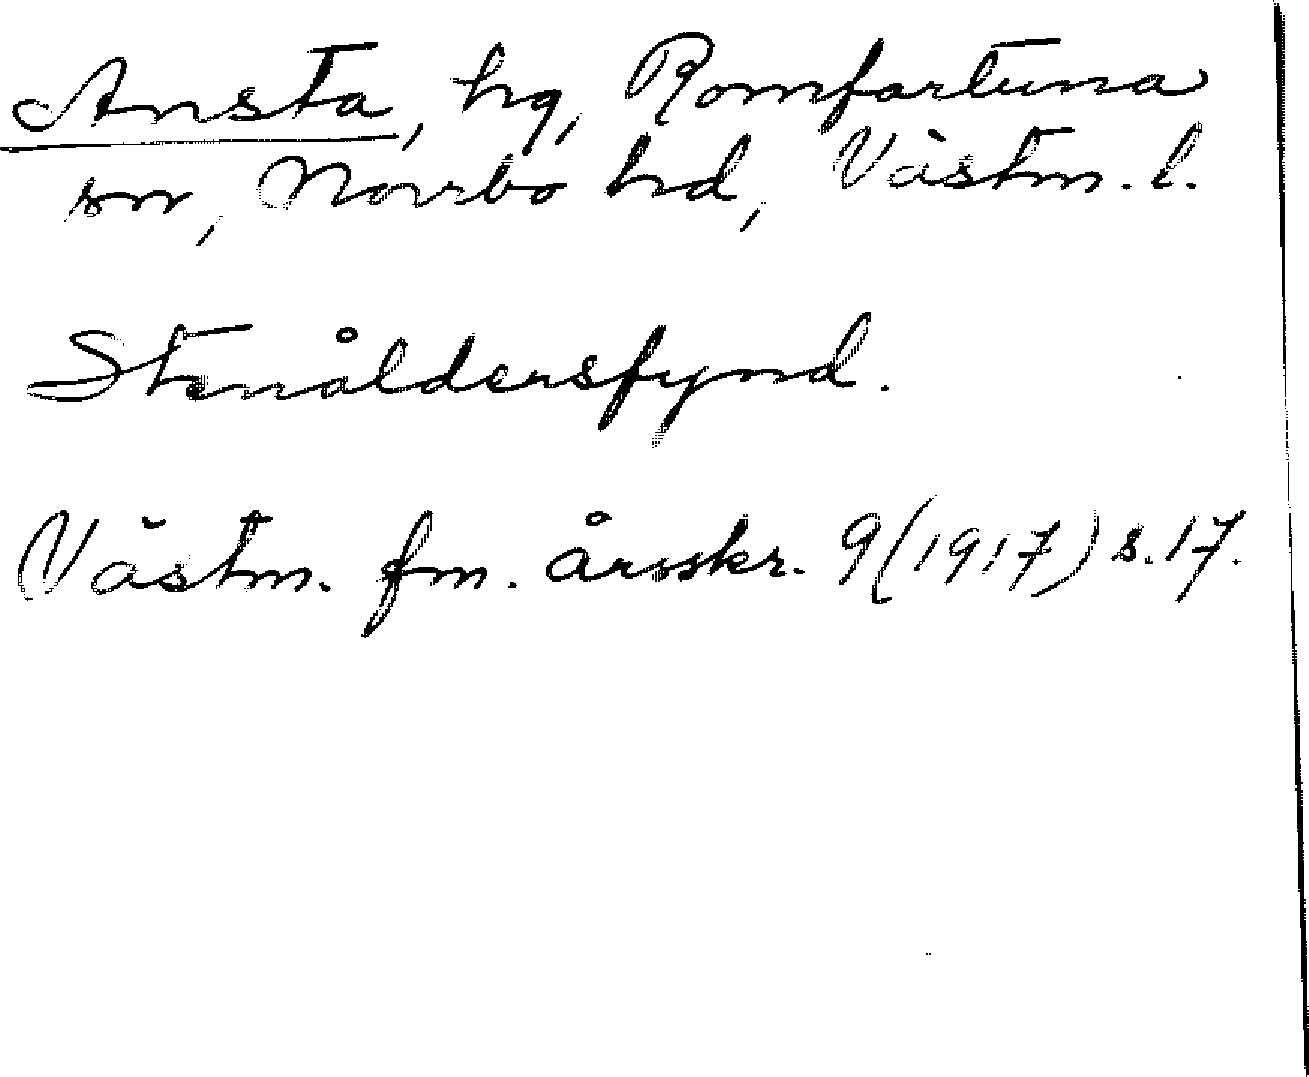 Ansta, hg, Romfartuna
sn, Norrbo hd, Västm. l.
Stenåldersfynd.
Västm. fm. årsskr. 9 (1917) s. 17.